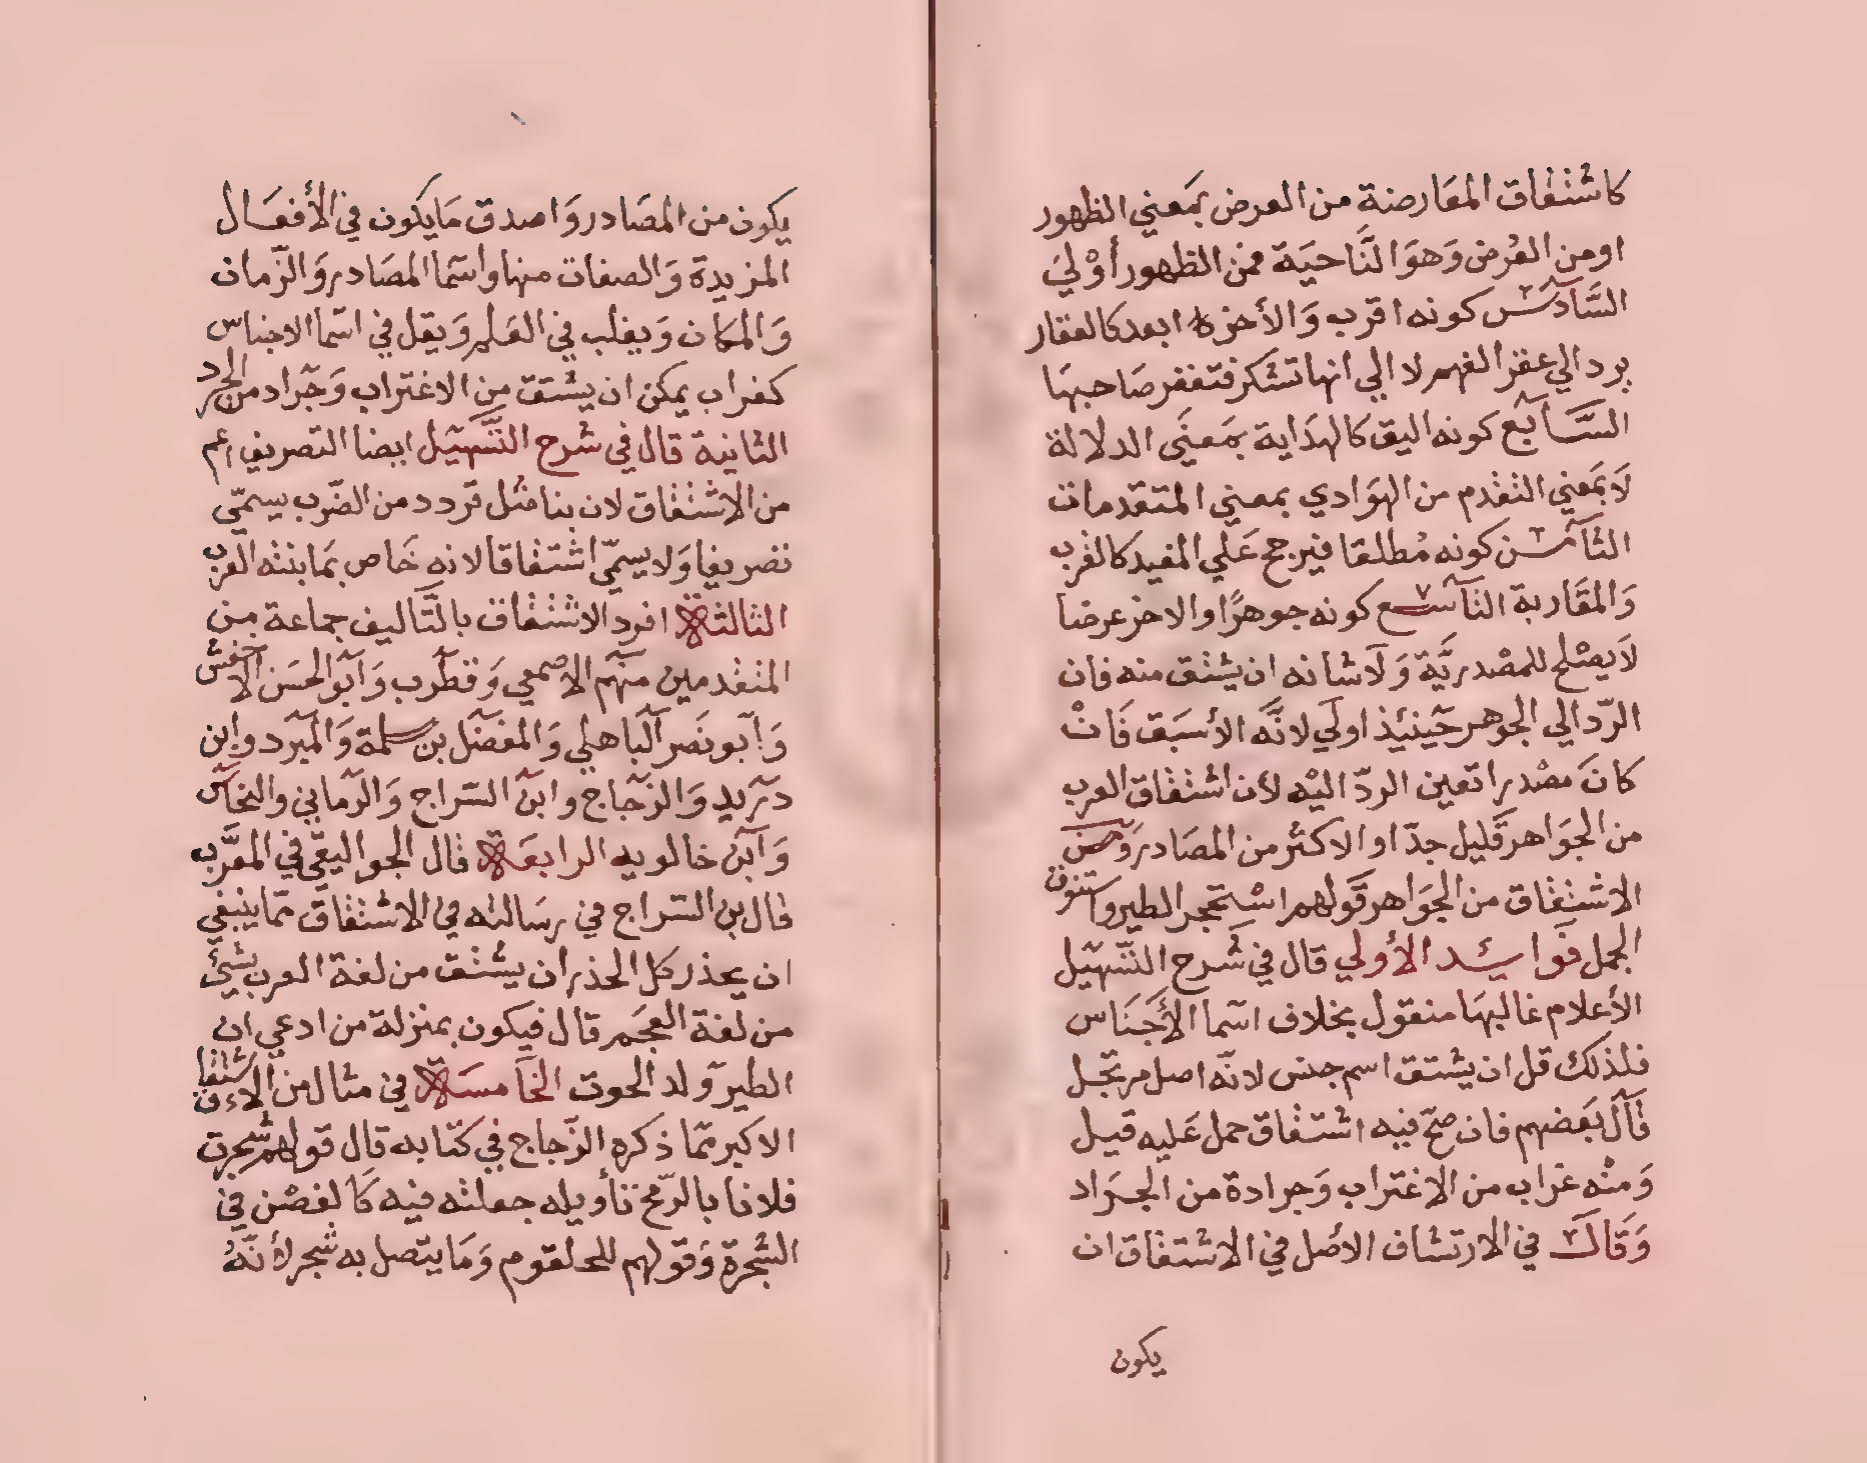 كاشتقاق المعَارضة من العرض بمَعني الظهور
اومن العُرض وَهوَ النَّاحيَة فمن الظهور أوْليَ
السَّادس كونه اقرب وَالأخر ابعد كالعقار
يرد الي عقر الفهم لا الي انها تسكر فتعقر صَاحبهَا
السَّابع كونه اليق كالهدَاية بمَعنَي الدلالة
لَا بمَعني التقدم من الهوَادي بمعني المتقدمات
الثامن كونه مُطلقا فيرجح عَلَي المقيد كالقرب
وَالمقَاربة التاسع كونه جوهرًا والاخر عرضا
لَا يصْلح للمصْدريَّة وَلَا شانه ان يشتق منه فان
الرّد الي الجوهر حينيئذ اولَي لانَّه الأسبَق فَانْ
كانَ مصْدرا تعين الردّ اليْه لأن اشتقاق العرب
من الجوَاهر قَليل جدّا والاكثر من المصَادر وَمن
الاشتقاق من الجوَاهر قَولهم اسْتحجر الطير واستنوق
الجمل فوَائد الأولي قال في شَرح التّسْهيل
الأعلام غالبهَا منقول بخلاف اسَما الأجنَاس
فلذلك قل ان يشتق اسم جنس لانّه اصل مرتجل
قَالَ بعَضهم فان صحّ فيه اشتقاق حمل عَليه قيل
وَمنْه غرَاب من الاغترَاب وَجرادة من الجرَاد
وَقَال في الارتشاف الاصْل في الاشتقاق ان
يكون
يكون من المصَادر وَاصدق مَا يكون في الأفعَال
المزيدة وَالصفات منها واسَما المصَادر وَالزّمان
وَالمكان وَيغلب في العَلم وَيقل في اسَما الاجناس
كغراب يمكن ان يشتق من الاغتراب وَجَراد من الجرد
الثانية قال في شرح التَّسْهيل ايضا التصريف اعم
من الاشتقاق لان بنا مثل قردد من الضّرب يسمّي
تصريفا وَلا يسمّي اشتقاقا لانه خَاص بمَا بنته العرب
الثالثة افرد الاشتقاق بالتَّاليف جماعة من
المتقدمين منهم الاصمعي وَقطرب وَأبوالحسَن الاخفش
وَأبو نَصر الباهلي وَالمفضل بن سلمة وَالمبرد وابن
دريد وَالزجاج وابن السّراج وَالرماني والنحاس
وَابن خالويه الرابعَة قال الجواليقي في المعَرَّب
قال بن السّراج في رسَالته في الاشتقاق ممّا ينبغي
ان يحذر كل الحذر ان يشتق من لغة العرب بشئ
من لغة العجَم قال فيكون بمنزلة من ادعي ان
الطير وَلد الحوت الخامسَة في مثال من الاشتقاق
الاكبر ممّا ذكره الزّجاج في كتابه قال قولهم شجرت
فلانا بالرّمح تأويله جعلته فيه كَالغصْن في
الشجرَة وَقولهم للحلقوم وَمَا يتّصل به شجر لأنّهُ